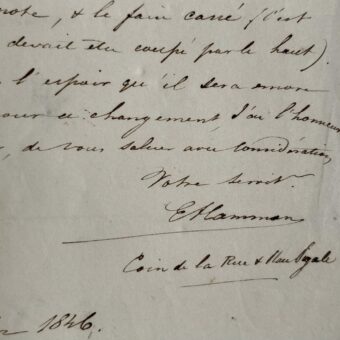 note, & le faire carré (c'est
devait être coupé par le haut).
l'espoir qu'il sera encore
pour ce changement J'ai l'honneur
, de vous saluer avec Considération,
Votre servit^r.
EHamman
Coin de la Rue & Pigale
1846.